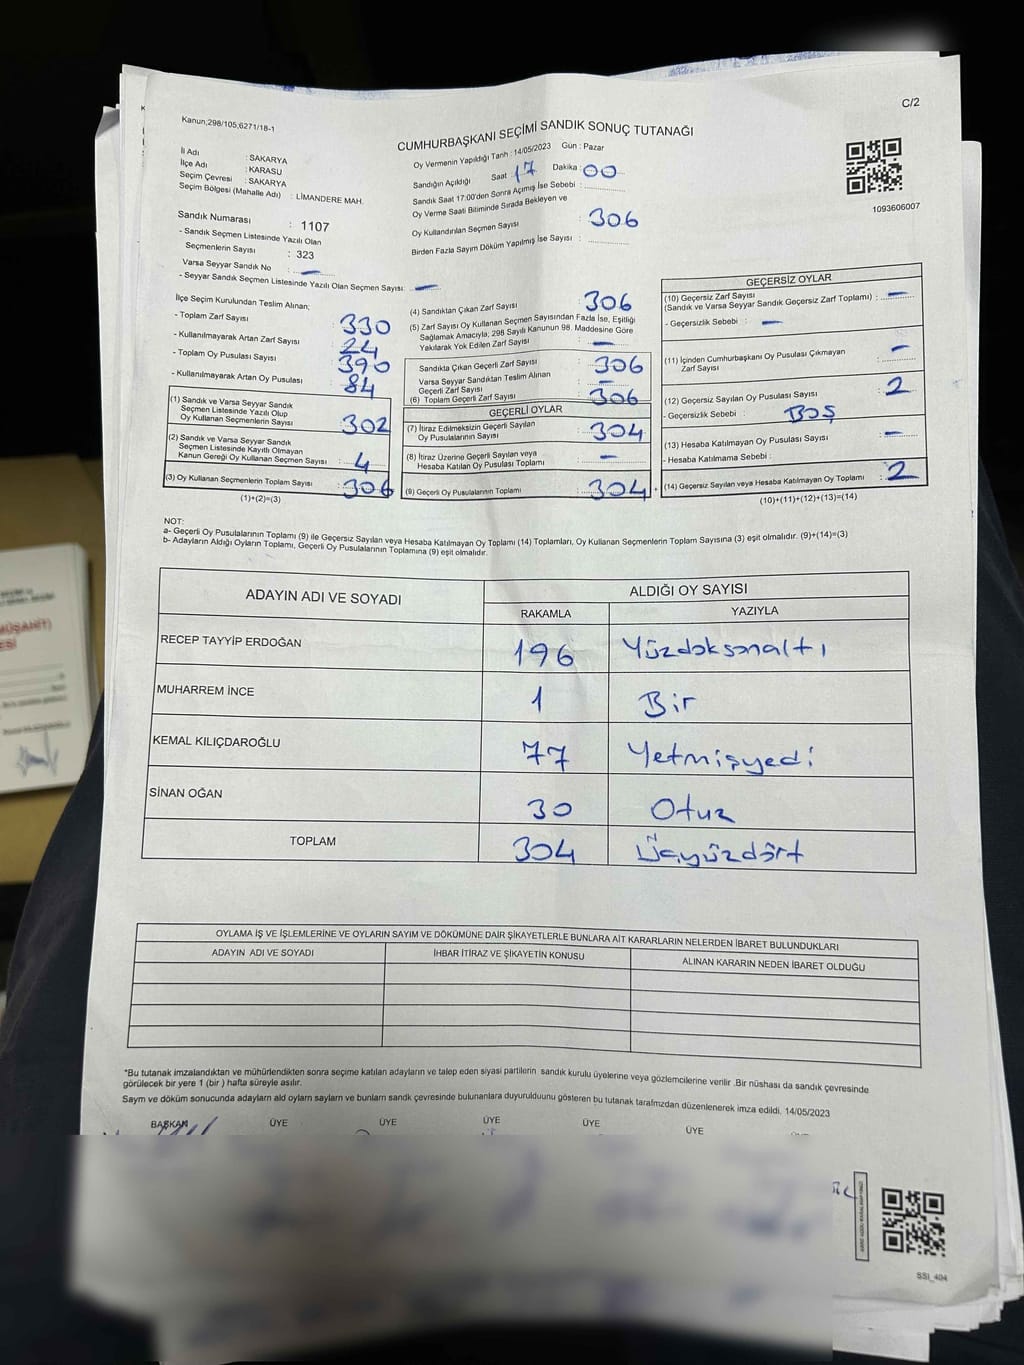 C/2
Kanun;298/105;6271/18-1
CUMHURBAŞKANI SEÇİMİ SANDIK SONUÇ TUTANAĞI
İl Adı : SAKARYA
İlçe Adı : KARASU
Seçim Çevresi : SAKARYA
Seçim Bölgesi (Mahalle Adı) : LİMANDERE MAH.
Oy Vermenin Yapıldığı Tarih : 14/05/2023 Gün : Pazar
Sandığın Açıldığı Saat : 17 Dakika : 00
Sandık Saat 17:00'den Sonra Açımış İse Sebebi :
Oy Verme Saati Bitiminde Sırada Bekleyen ve
Oy Kullandırılan Seçmen Sayısı : 306
Birden Fazla Sayım Döküm Yapılmış İse Sayısı :
1093606007
Sandık Numarası : 1107
- Sandık Seçmen Listesinde Yazılı Olan
Seçmenlerin Sayısı : 323
Varsa Seyyar Sandık No : —
- Seyyar Sandık Seçmen Listesinde Yazılı Olan Seçmen Sayısı: —
İlçe Seçim Kurulundan Teslim Alınan;
- Toplam Zarf Sayısı : 330
- Kullanılmayarak Artan Zarf Sayısı : 24
- Toplam Oy Pusulası Sayısı : 390
- Kullanılmayarak Artan Oy Pusulası : 84
(1) Sandık ve Varsa Seyyar Sandık
Seçmen Listesinde Yazılı Olup
Oy Kullanan Seçmenlerin Sayısı : 302
(2) Sandık ve Varsa Seyyar Sandık
Seçmen Listesinde Kayıtlı Olmayan
Kanun Gereği Oy Kullanan Seçmen Sayısı : 4
(3) Oy Kullanan Seçmenlerin Toplam Sayısı : 306
(1)+(2)=(3)
(4) Sandıktan Çıkan Zarf Sayısı : 306
(5) Zarf Sayısı Oy Kullanan Seçmen Sayısından Fazla İse, Eşitliği
Sağlamak Amacıyla; 298 Sayılı Kanunun 98. Maddesine Göre
Yakılarak Yok Edilen Zarf Sayısı : —
Sandıkta Çıkan Geçerli Zarf Sayısı : 306
Varsa Seyyar Sandıktan Teslim Alınan
Geçerli Zarf Sayısı : —
(6) Toplam Geçerli Zarf Sayısı : 306
GEÇERLİ OYLAR
(7) İtiraz Edilmeksizin Geçerli Sayılan
Oy Pusulalarının Sayısı : 304
(8) İtiraz Üzerine Geçerli Sayılan veya
Hesaba Katılan Oy Pusulası Toplamı : —
(9) Geçerli Oy Pusulalarının Toplamı : 304
GEÇERSİZ OYLAR
(10) Geçersiz Zarf Sayısı
(Sandık ve Varsa Seyyar Sandık Geçersiz Zarf Toplamı) : —
- Geçersizlik Sebebi : —
(11) İçinden Cumhurbaşkanı Oy Pusulası Çıkmayan
Zarf Sayısı : —
(12) Geçersiz Sayılan Oy Pusulası Sayısı : 2
- Geçersizlik Sebebi : BOŞ
(13) Hesaba Katılmayan Oy Pusulası Sayısı : —
- Hesaba Katılmama Sebebi :
(14) Geçersiz Sayılan veya Hesaba Katılmayan Oy Toplamı : 2
(10)+(11)+(12)+(13)=(14)
NOT:
a- Geçerli Oy Pusulalarının Toplamı (9) ile Geçersiz Sayılan veya Hesaba Katılmayan Oy Toplamı (14) Toplamları, Oy Kullanan Seçmenlerin Toplam Sayısına (3) eşit olmalıdır. (9)+(14)=(3)
b- Adayların Aldığı Oyların Toplamı, Geçerli Oy Pusulalarının Toplamına (9) eşit olmalıdır.
ADAYIN ADI VE SOYADI ALDIĞI OY SAYISI
RAKAMLA YAZIYLA
RECEP TAYYİP ERDOĞAN 196 Yüzdoksanaltı
MUHARREM İNCE 1 Bir
KEMAL KILIÇDAROĞLU 77 Yetmişyedi
SİNAN OĞAN 30 Otuz
TOPLAM 304 Üçyüzdört
OYLAMA İŞ VE İŞLEMLERİNE VE OYLARIN SAYIM VE DÖKÜMÜNE DAİR ŞİKAYETLERLE BUNLARA AİT KARARLARIN NELERDEN İBARET BULUNDUKLARI
ADAYIN ADI VE SOYADI İHBAR İTİRAZ VE ŞİKAYETİN KONUSU ALINAN KARARIN NEDEN İBARET OLDUĞU
*Bu tutanak imzalandıktan ve mühürlendikten sonra seçime katılan adayların ve talep eden siyasi partilerin sandık kurulu üyelerine veya gözlemcilerine verilir .Bir nüshası da sandık çevresinde
görülecek bir yere 1 (bir ) hafta süreyle asılır.
Sayım ve döküm sonucunda adayların ald oyların sayların ve bunların sandk çevresinde bulunanlara duyurulduunu gösteren bu tutanak tarafmzdan düzenlenerek imza edildi. 14/05/2023
BAŞKAN ÜYE ÜYE ÜYE ÜYE ÜYE
SSI_404